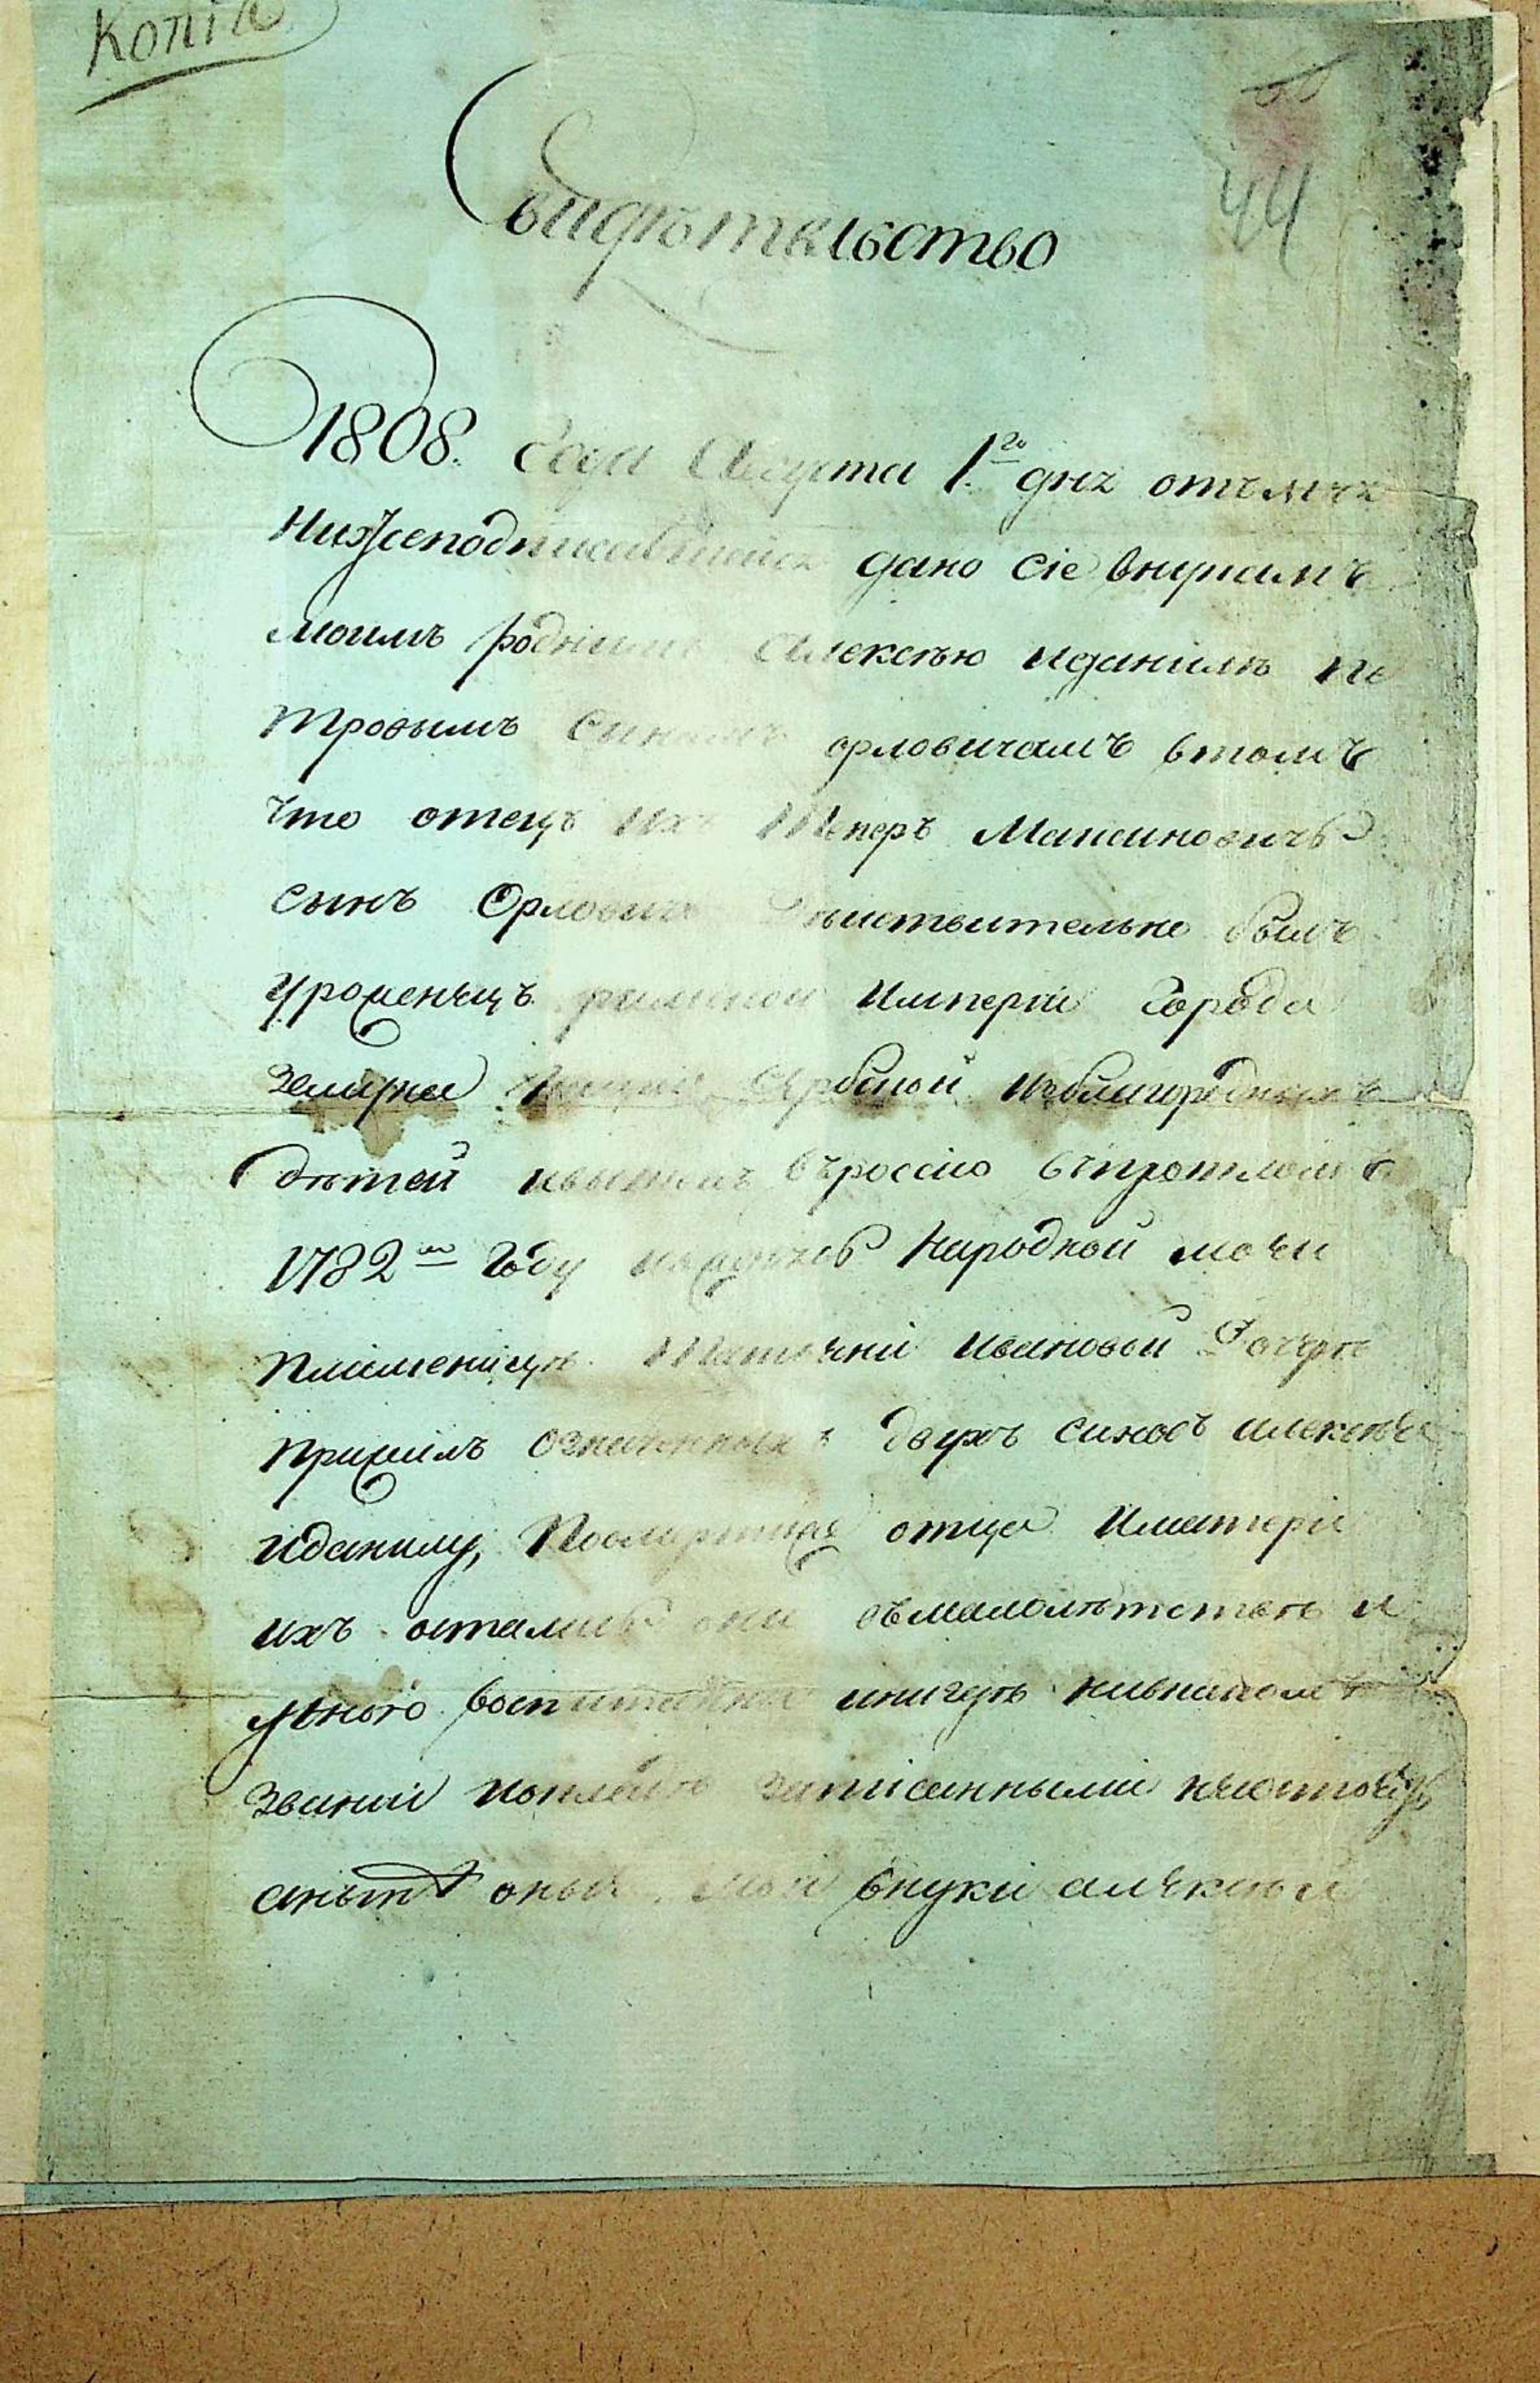 Копія
44
Свидѣтельство
1808. года Августа 1.го дня отъ меня
Нижеподписавшейся дано сіе внукамъ
моимъ родним Алексѣю иданилѣ пе
тровымъ Синамъ орловичамъ втомъ
что отецъ ихъ Петеръ Максиновичъ
сынъ Орловичъ Дѣиствительно былъ
уроженецъ римской Имперіи Города
Земунa Нацыи Сербской изблагородныхъ
дѣтей ивышелъ въроссію въпрошломъ
1782м Году народной моеи
племеницѣ Татіяни Ивановой дочерѣ
прижилъ означенныхъ двухъ синовъ алексѣя
иданилу, Посмертіже отца Иматери
ихъ остались они въмалолѣтствѣ и
уѣного воспитания инигдѣ нивкакомъ
званіи иокладѣ записанныміи нѣсостоятъ
анынѣ оные мои внуки алексѣй